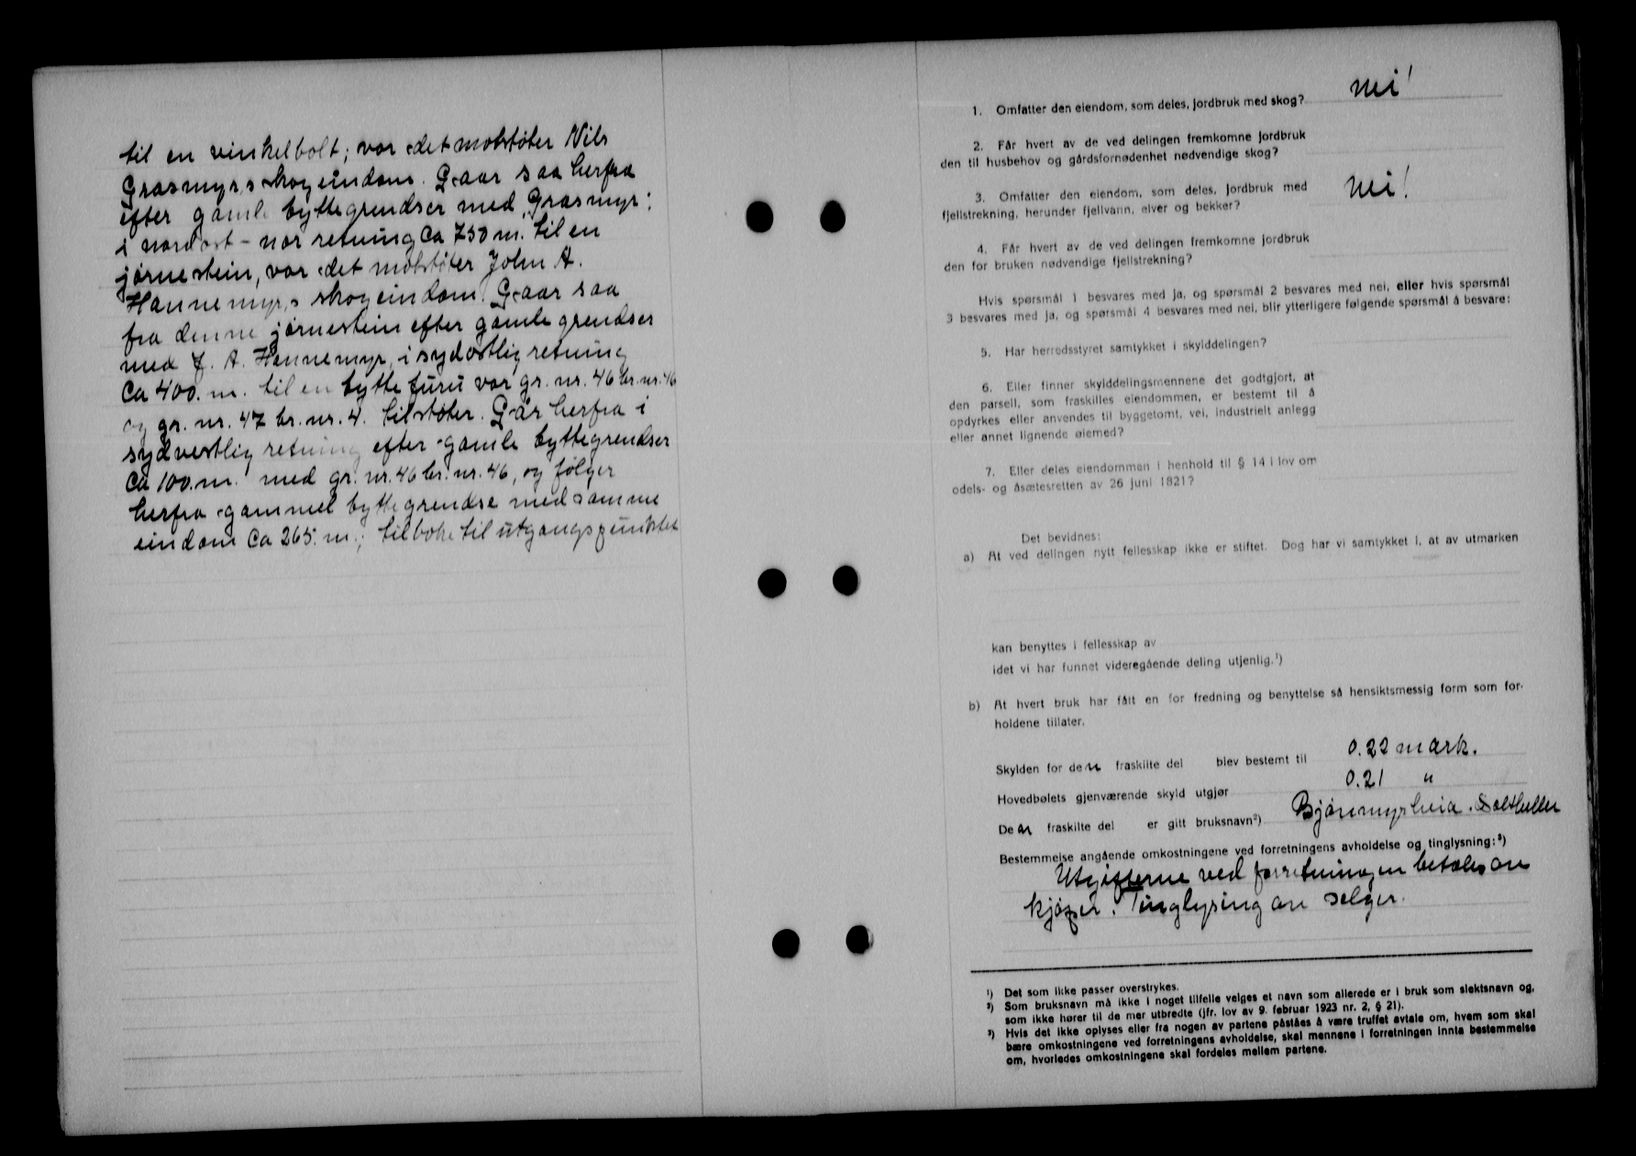 til en vinkelbolt; vor det motstöter Nils
Grasmyr,s skogeindom. Gaar saa herfra
efter gamle byttegrendser med „Grasmyr"
i nordost - nor retning Ca 750 m. til en
jörnestein, vor det motstöter John A.
Hannemyr,s skogeindom. Gaar saa
fra denne jörnestein efter gamle grendser
med J. A. Hannemyr, i sydostlig retning
Ca 400. m. til en bytte furu vor gr. nr. 46 br. nr. 46
og gr. nr. 47 br. nr. 4. tilstöter. Går herfra i
sydvestlig retning efter gamle byttegrendser
Ca 100. m. med gr. nr. 46 br. nr. 46, og fölger
herfra gammel byttegrendse med samme
eindom Ca 265. m.; tilboke til utgangspunktet
1. Omfatter den eiendom, som deles, jordbruk med skog? nei!
2. Får hvert av de ved delingen fremkomne jordbruk
den til husbehov og gårdsfornødenhet nødvendige skog?
3. Omfatter den eiendom, som deles, jordbruk med
fjellstrekning, herunder fjellvann, elver og bekker? nei!
4. Får hvert av de ved delingen fremkomne jordbruk
den for bruken nødvendige fjellstrekning?
Hvis spørsmål 1 besvares med ja, og spørsmål 2 besvares med nei, eller hvis spørsmål
3 besvares med ja, og spørsmål 4 besvares med nei, blir ytterligere følgende spørsmål å besvare:
5. Har herredsstyret samtykket i skylddelingen?
6. Eller finner skylddelingsmennene det godtgjort, at
den parsell, som fraskilles eiendommen, er bestemt til å
opdyrkes eller anvendes til byggetomt, vei, industrielt anlegg
eller annet lignende øiemed?
7. Eller deles eiendommen i henhold til § 14 i lov om
odels- og åsætesretten av 26 juni 1821?
Det bevidnes:
a) At ved delingen nytt fellesskap ikke er stiftet. Dog har vi samtykket i, at av utmarken
kan benyttes i fellesskap av
idet vi har funnet videregående deling utjenlig.¹)
b) At hvert bruk har fått en for fredning og benyttelse så hensiktsmessig form som for-
holdene tillater.
Skylden for den fraskilte del blev bestemt til 0.22 mark.
Hovedbølets gjenværende skyld utgjør 0.21 "
Den fraskilte del er gitt bruksnavn²) Bjönmyrheia.
Bestemmelse angående omkostningene ved forretningens avholdelse og tinglysning:³)
Utgifterne ved forretningen betales av
kjöper. Tinglysing av selger.
¹) Det som ikke passer overstrykes.
²) Som bruksnavn må ikke i noget tilfelle velges et navn som allerede er i bruk som slektsnavn og,
som ikke hører til de mer utbredte (jfr. lov av 9. februar 1923 nr. 2, § 21).
³) Hvis det ikke oplyses eller fra nogen av partene påståes å være truffet avtale om, hvem som skal
bære omkostningene ved forretningens avholdelse, skal mennene i forretningen innta bestemmelse
om, hvorledes omkostningene skal fordeles mellem partene.